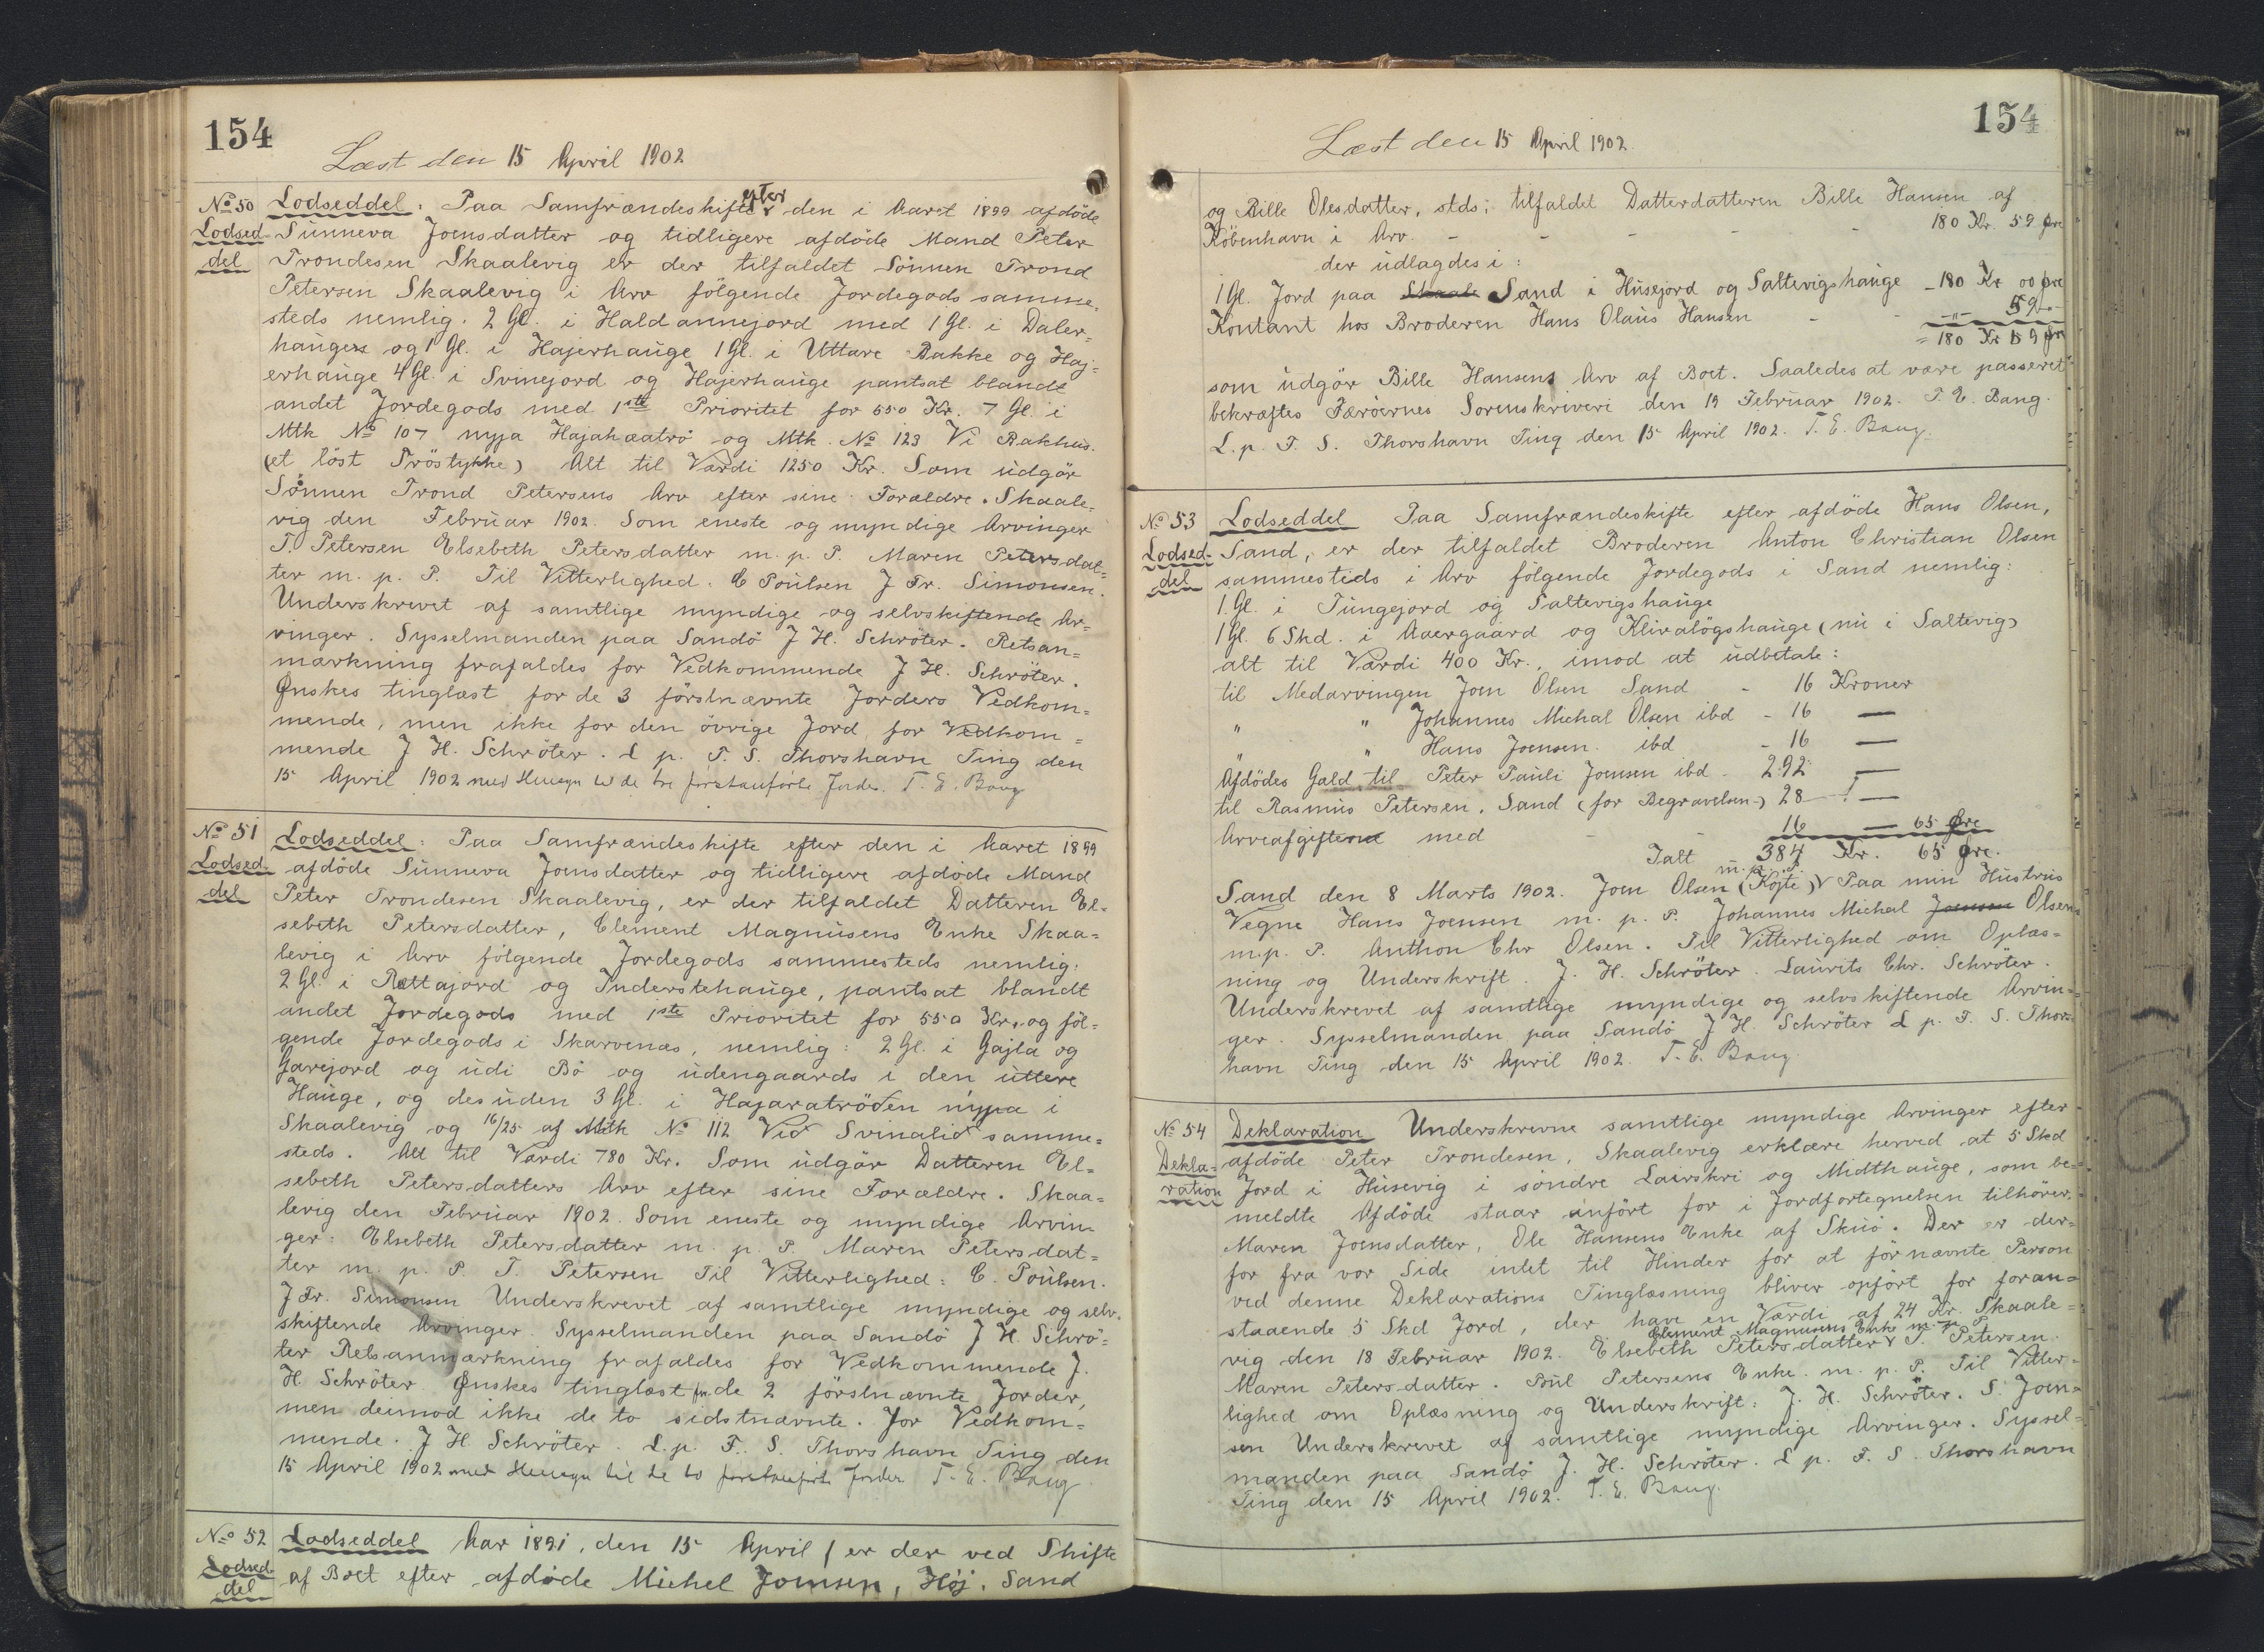 154
Læst den 15 April 1902
No 50
Lodsed-
del
Lodseddel: Paa Samfrændeskifte efter den i Aaret 1899 afdöde
Sunneva Joensdatter og tidligere afdöde Mand Peter
Trondesen Skaalevig er der tilfaldet Sönnen Trond
Petersen Skaalevig i Arv fölgende Jordegods samme-
steds nemlig. 2 Gl. i Haldannejord med 1 Gl. i Daler-
haugen og 1 Gl. i Hajerhauge 1 Gl. i Uttare Bakke og Haj-
erhauge 4 Gl. i Svinejord og Hajerhauge pantsat blandt
andet Jordegods med 1ste Prioritet for 550 Kr. 7 Gl. i
Mtk No 107 nyja Hajahæatrö og Mtk. No 123 Vi Bakhus.
(et löst Tröstykke) Alt til Værdi 1250 Kr. Som udgör
Sönnen Trond Petersens Arv efter sine Forældre. Skaale-
vig den Februar 1902. Som eneste og myndige Arvinger
T. Petersen Elsebeth Petersdatter m. p. P. Maren Petersdat-
ter m. p. P. Til Vitterlighed: C Poulsen J Fr. Simonsen.
Underskrevet af samtlige myndige og selvskiftende Ar-
vinger. Sysselmanden paa Sandö J H. Schröter. Retsan-
mærkning frafaldes for Vedkommende J H. Schröter.
Ønskes tinglæst for de 3 förstnævnte Jorders Vedkom-
mende, men ikke for den övrige Jord, for Vedkom-
mende J H. Schröter. L p. F. S. Thorshavn Ting den
15 April 1902 med Hensyn til de tre förstanförte Jorder. T. E. Bang
No 51
Lodsed-
del
Lodseddel: Paa Samfrændeskifte efter den i Aaret 1899
afdöde Sunneva Joensdatter og tidligere afdöde Mand
Peter Trondesen Skaalevig, er der tilfaldet Datteren El-
sebeth Petersdatter, Clement Magnusens Enke Skaa-
levig i Arv fölgende Jordegods sammesteds nemlig:
2 Gl. i Rættajord og Inderstehauge, pantsat blandt
andet Jordegods med 1ste Prioritet for 550 Kr. og föl-
gende Jordegods i Skarvenæs, nemlig: 2 Gl. i Gajla og
Garejord og udi Bö og udengaards i den uttere
Hauge, og desuden 3 Gl. i Hajaratröden nypa i
Skaalevig og 16/25 af Mtk No 112 Ved Svinalid samme-
steds. Alt til Værdi 780 Kr. Som udgör Datteren El-
sebeth Petersdatters Arv efter sine Forældre. Skaa-
levig den Februar 1902. Som eneste og myndige Arvin-
ger: Elsebeth Petersdatter m. p. P. Maren Petersdat-
ter m. p. P. T. Petersen Til Vitterlighed: C. Poulsen.
J Fr. Simonsen Underskrevet af samtlige myndige og selv-
skiftende Arvinger. Sysselmanden paa Sandö J H. Schrö-
ter Retsanmærkning frafaldes for Vedkommende J.
H. Schröter Ønskes tinglæst for de 2 förstnævnte Jorder,
men deimod ikke de to sidstnævnte. For Vedkom-
mende. J H. Schröter. L. p. F. S. Thorshavn Ting den
15 April 1902 med Hensyn til de to förstanförte Jorder T. E. Bang
No 52
Lodsed-
del
Lodseddel Aar 1891, den 15 April / er der ved Skifte
af Boet efter afdöde Michel Joensen, Höj, Sand
154
Læst den 15 April 1902.
og Bille Olesdatter, stds; tilfaldet Datterdatteren Bille Hansen af
København i Arv. - - - - - 180 Kr. 59 Øre
der udlagdes i:
1 Gl. Jord paa Skaale Sand i Husejord og Saltevigshauge - 180 Kr 00 Øre
Kontant hos Broderen Hans Olaus Hansen - - -„- 59 -
= 180 Kr 59 Øre
som udgör Bille Hansens Arv af Boet. Saaledes at være passeret
bekræftes Færöernes Sorenskriveri den 19 Februar 1902. T. E. Bang.
L. p. F. S. Thorshavn Ting den 15 April 1902. T. E. Bang.
No 53
Lodsed-
del
Lodseddel Paa Samfrændeskifte efter afdöde Hans Olsen,
Sand, er der tilfaldet Broderen Anton Christian Olsen
sammesteds i Arv fölgende Jordegods i Sand nemlig:
1 Gl. i Tungejord og Saltevigshauge
1 Gl. 6 Skd. i Aaergaard og Klivalögshauge (nu i Saltevig)
alt til Værdi 400 Kr., imod at udbetale:
til Medarvingen Joen Olsen Sand - 16 Kroner
„ „ Johannes Michal Olsen ibd - 16 —
„ „ Hans Joensen ibd - 16 —
Afdödes Gæld til Peter Pauli Joensen ibd - 292 —
til Rasmus Petersen, Sand (for Begravelsen) 28 —
Arveafgifterne med - - 16 — 65 Øre
Ialt 384 Kr. 65 Øre.
Sand den 8 Marts 1902. Joen Olsen (Köjti) m. p. P. Paa min Hustrus
Vegne Hans Joensen m. p. P. Johannes Michal Joensen Olsen
m. p. P. Anthon Chr Olsen. Til Vitterlighed om Oplæs-
ning og Underskrift. J. H. Schröter. Laurits Chr. Schröter.
Underskrevet af samtlige myndige og selvskiftende Arvin-
ger. Sysselmanden paa Sandö J H. Schröter L p. F. S. Thors-
havn Ting den 15 April 1902. T. E. Bang.
No 54
Dekla-
ration
Deklaration Underskrevne samtlige myndige Arvinger efter
afdöde Peter Trondesen, Skaalevig erklære herved at 5 Skd
Jord i Husevig i söndre Lairskri og Midthauge, som be-
meldte Afdöde staar anfört for i Jordfortegnelsen tilhörer.
Maren Joensdatter, Ole Hansens Enke af Skuö. Der er der-
for fra vor Side intet til Hinder for at förnævnte Person
ved denne Deklarations Tinglæsning bliver opfört for foran-
staaende 5 Skd Jord, der har en Værdi af 24 Kr. Skaale-
vig den 18 Februar 1902. Elsebeth Petersdatter Clement Magnusens Enke m. p. P. T. Petersen.
Maren Petersdatter. Poul Petersens Enke. m. p. P. Til Vitter-
lighed om Oplæsning og Underskrift: J. H. Schröter. S. Joen-
sen Underskrevet af samtlige myndige Arvinger. Syssel-
manden paa Sandö J. H. Schröter. L p. F. S. Thorshavn
Ting den 15 April 1902. T. E. Bang.